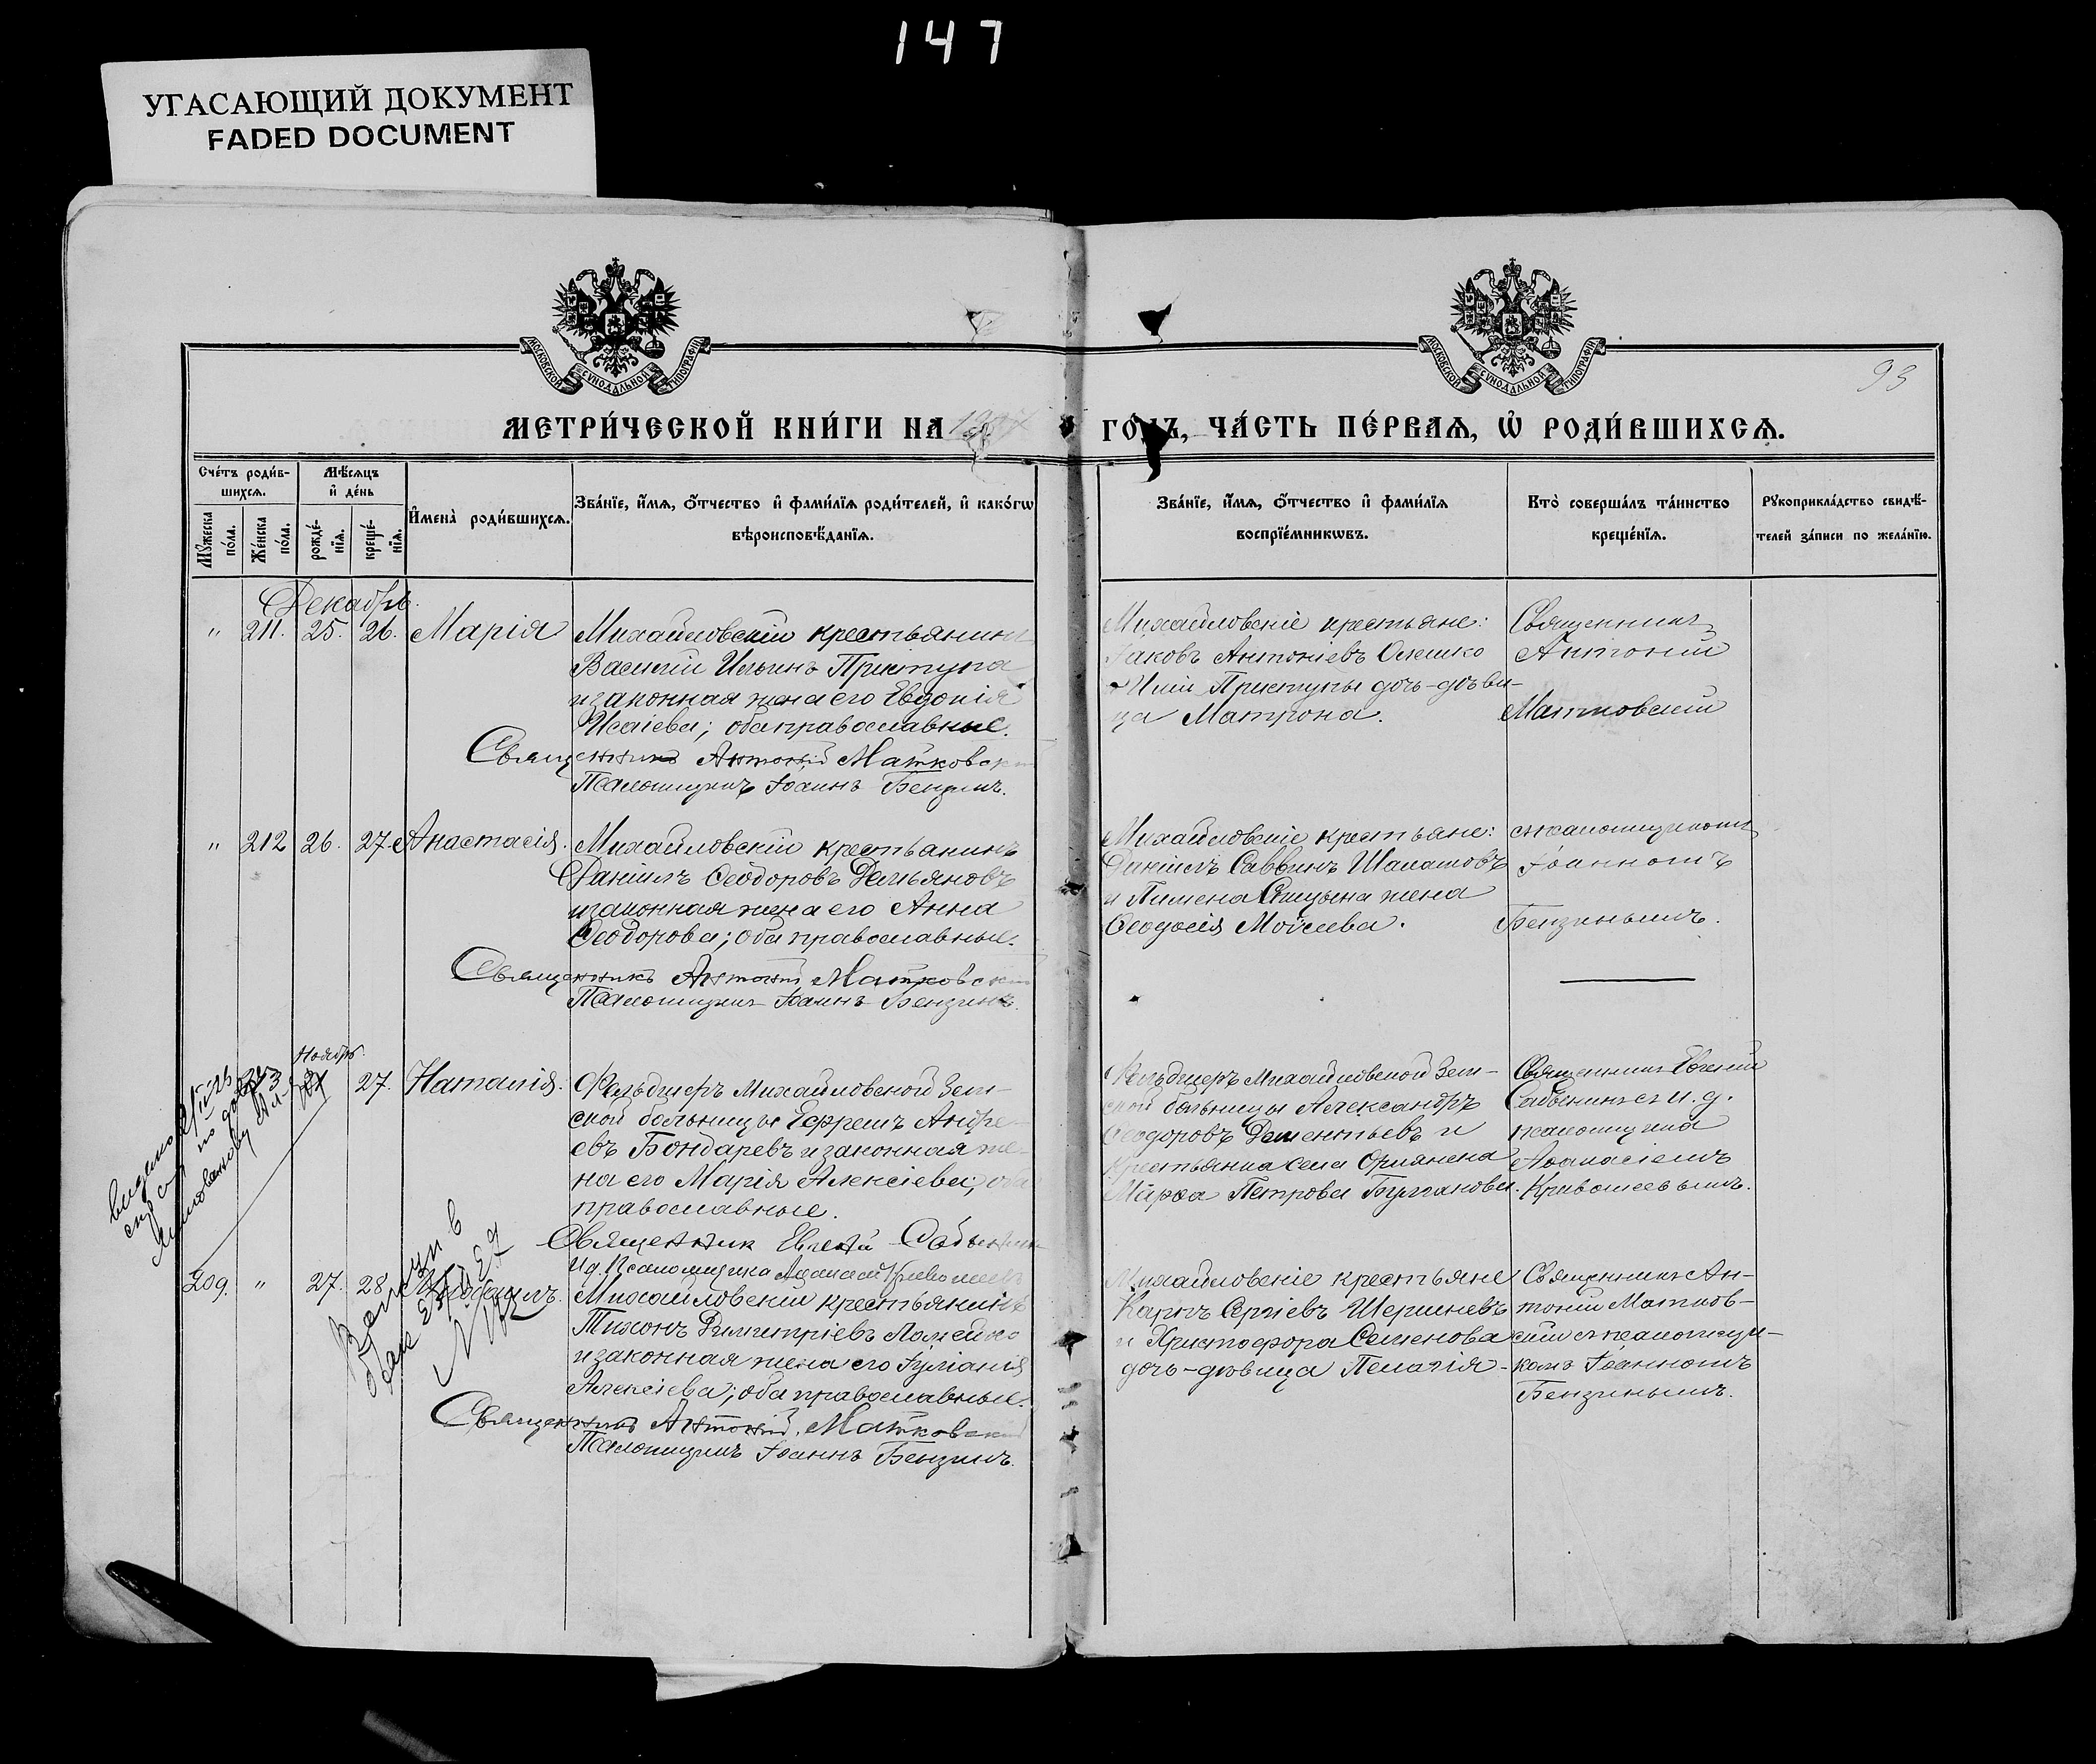 147
УГАСАЮЩИЙ ДОКУМЕНТ
FADED DOCUMENT
МОСКОВСКОЙ СѴНОДАЛЬНОЙ ТИПОГРАФІИ
МОСКОВСКОЙ СѴНОДАЛЬНОЙ ТИПОГРАФІИ
93
МЕТРИ́ЧЕСКОЙ КНИ́ГИ НА
ГО́ДЪ, ЧА́СТЬ ПЕ́РВАѦ, Ѡ҆ РОДИ́ВШИХСѦ.
Сче́тъ роди́в-
шихсѧ.
Мꙋ́жеска по́ла.
Же́нска по́ла.
Мѣ́сѧцъ
и҆ де́нь
рожде́-нїѧ.
креще́-нїѧ.
И҆мена̀ роди́вшихсѧ.
Зва́нїе, и҆́мѧ, ѻ҆́тчество и҆ фами́лїѧ роди́телей, и҆ како́гѡ
вѣроисповѣ́данїѧ.
Зва́нїе, и҆́мѧ, ѻ҆́тчество и҆ фами́лїѧ
воспрїе́мникѡвъ.
Кто̀ соверша́лъ та́инство
креще́нїѧ.
Рꙋкоприкла́дство свидѣ́-
телей за́писи по жела́нїю.
Декабрь.
" 211. 25. 26. Марія
Михайловскій крестьянинъ
Василій Ильинъ Приступа
и законная жена его Евдокія
Исаіева; оба православные.
Священникъ Антоній Матковскій
Псаломщикъ Іоаннъ Бензинъ.
Михайловскіе крестьяне:
Іаковъ Антоніевъ Олешко
и Иліи Приступы дочь-дѣви-
ца Матрона.
Священникъ
Антоній
Матковскій
" 212 26. 27. Анастасія.
Михайловскій крестьянинъ
Даніилъ Ѳеодоровъ Демьяновъ
и законная жена его Анна
Ѳеодорова; оба православные.
Священникъ Антоній Матковскій
Псаломщикъ Іоаннъ Бензинъ.
Михайловскіе крестьяне:
Даніилъ Саввинъ Шалашовъ
и Пимена жена
Ѳеодосія Моисеева.
съ псаломщикомъ
Іоанномъ
Бензинымъ.
Ноябрь.
27. Наталія.
Фельдшеръ Михайловской Зем-
ской больницы Ефремъ Андре-
евъ Бондаревъ и законная же-
на его Марія Алексіева; оба
православные.
Священник Евгений Сабынин
И.д. Псаломщика Аѳанасий Кривошеевъ
Фельдшеръ Михайловской Зем-
ской больницы Александръ
Ѳеодоровъ Дементьевъ и
крестьянка села
Марѳа Петрова
Священникъ Евгеній
Сабынинъ съ и. д.
псаломщика
Аѳанасіемъ
Кривошеевымъ.
209. " 27. 28.
Михайловскій крестьянинъ
Тихонъ Димитріевъ Ломейко
и законная жена его Іуліанія
Алексіева; оба православные.
Священникъ Антоній Матковскій
Псаломщикъ Іоаннъ Бензинъ.
Михайловскіе крестьяне
Карпъ Сергіевъ
и Христофора Семенова
дочь-дѣвица Пелагія
Священникъ Ан-
тоній Матков-
скій съ псаломщи-
комъ Іоанномъ
Бензинымъ.